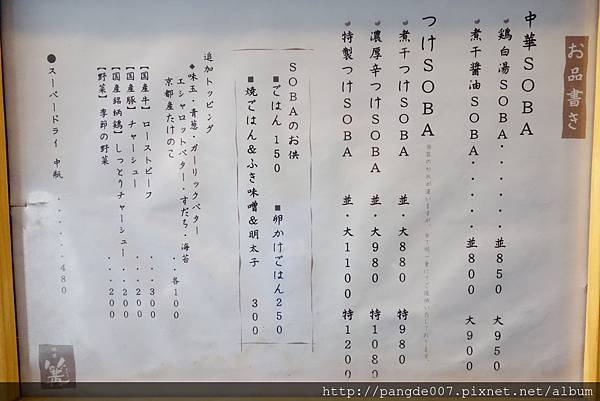 お品書き
中華SOBA
鶏白湯SOBA・・・・・並850 大950
煮干醤油SOBA・・・・・並800 大900
つけSOBA
煮干つけSOBA 並・大880 特980
濃厚辛つけSOBA 並・大980 特1080
特製つけSOBA 並・大1100 特1200
SOBAのお供
■ごはん 150 ■卵かけごはん250
■焼ごはん&ふき味噌&明太子 300
追加トッピング
◆味玉・青葱・ガーリックバター
エシャロットバター・すだち・海苔
京都産たけのこ ・・各100
【国産牛】ローストビーフ ・・・300
【国産豚】チャーシュー ・・・200
【国産銘柄鶏】しっとりチャーシュー ・・200
【野菜】季節の野菜 ・・・200
●スーパードライ 中瓶 ・・・・・・480
http://pangde007.pixnet.net/album